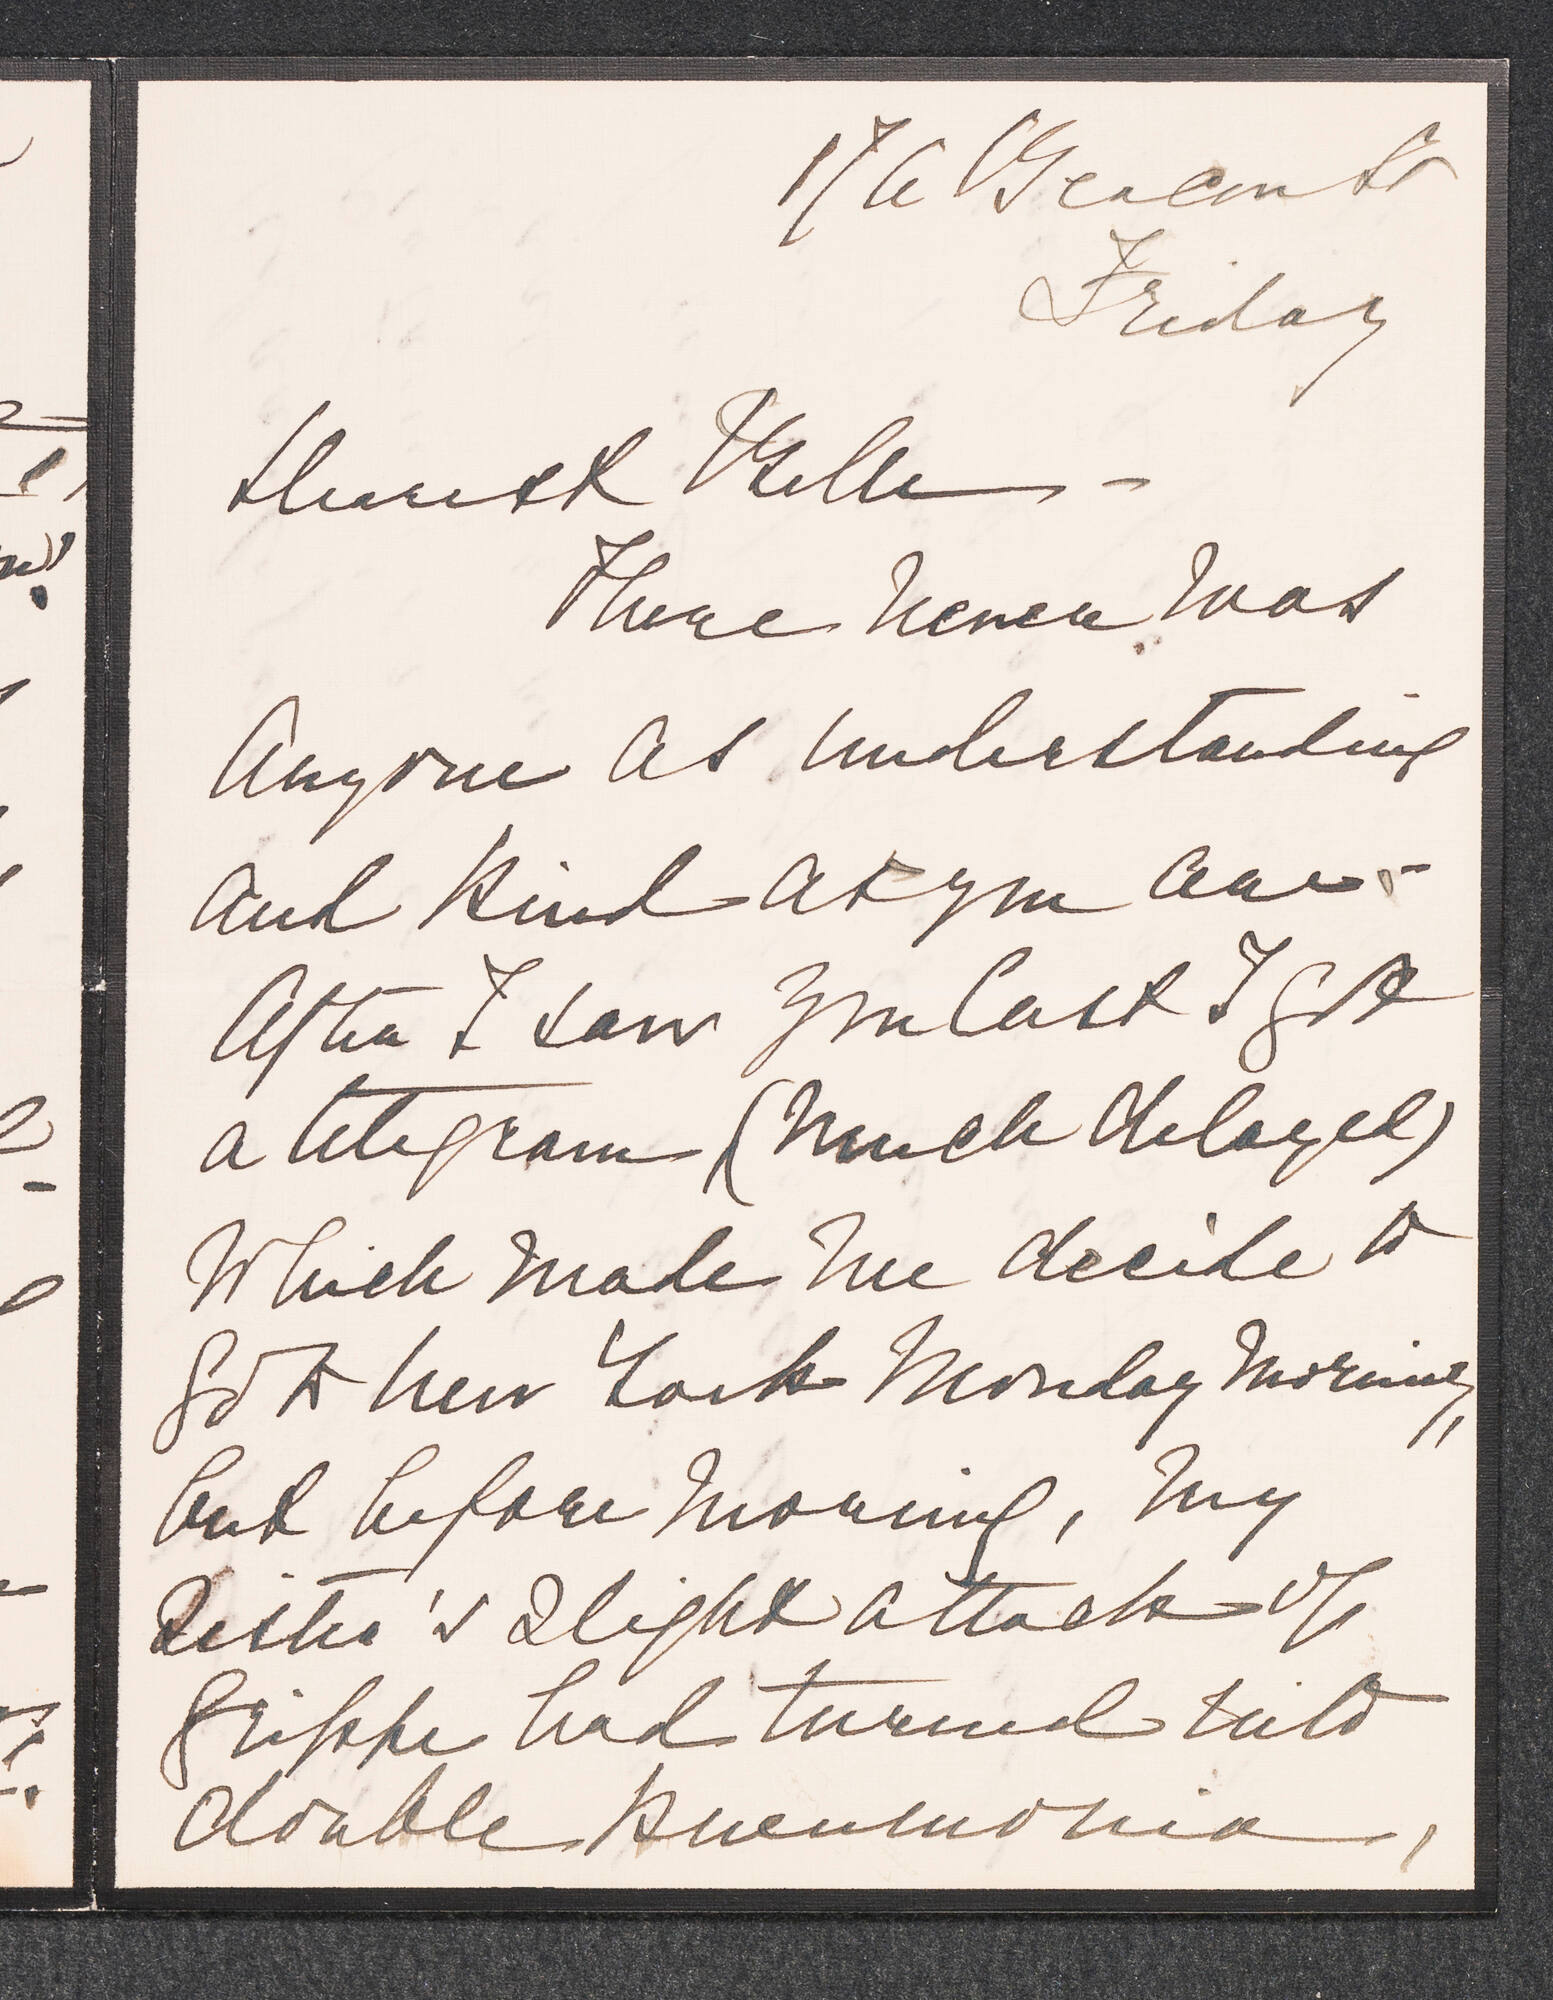 176 Beacon St
Friday
Dearest Belle -
There never was
Anyone as understanding
and kind as you are -
After I saw you last I got
a telegram (much delayed)
Which made me decide to
go to New York Monday morning,
but before morning, my
Sister's slight attack of
grippe had turned into
double pneumonia,